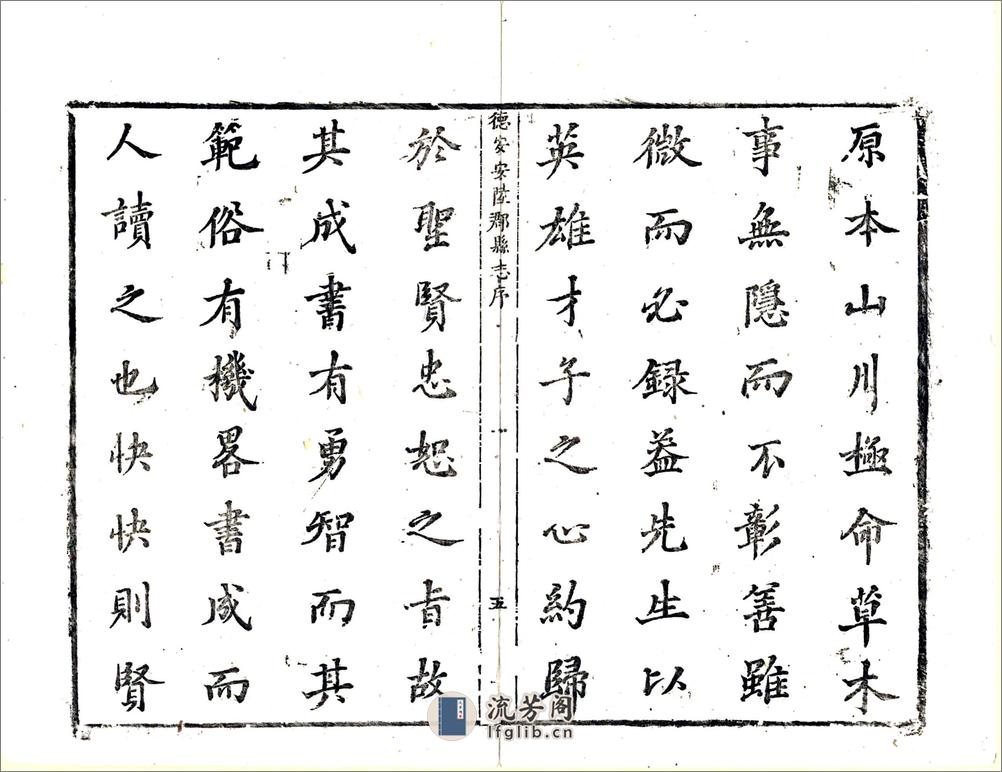 原本山川極命草木
事無隱而不彰善雖
微而必録益先生以
英雄才子之心約歸
德安安陸郡縣志序
五
於聖賢忠恕之旨故
其成書有勇智而其
範俗有機畧書成而
人讀之也快快則賢
流芳阁
lfglib.cn